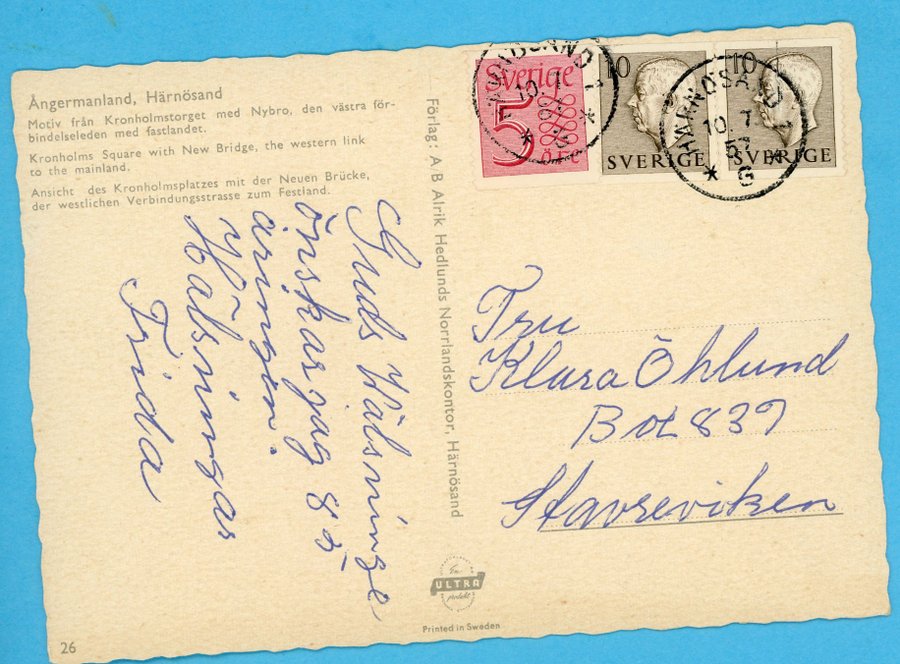 Ångermanland, Härnösand
Motiv från Kronholmstorget med Nybro, den västra för-
bindelseleden med fastlandet.
Kronholms Square with New Bridge, the western link
to the mainland.
Ansicht des Kronholmsplatzes mit der Neuen Brücke,
der westlichen Verbindungsstrasse zum Festland.
Guds Välsninge
önskar jag
Hälsningar
Frida
Förlag: AB Alrik Hedlunds Norrlandskontor, Härnösand
Sverige
5
ÖRE
10
SVERIGE
10
SVERIGE
HÄRNÖSAND
10. 7
57
G
Fru
Klara Öhlund
Box 839
Stavreviken
ULTRA
produkt
Printed in Sweden
26